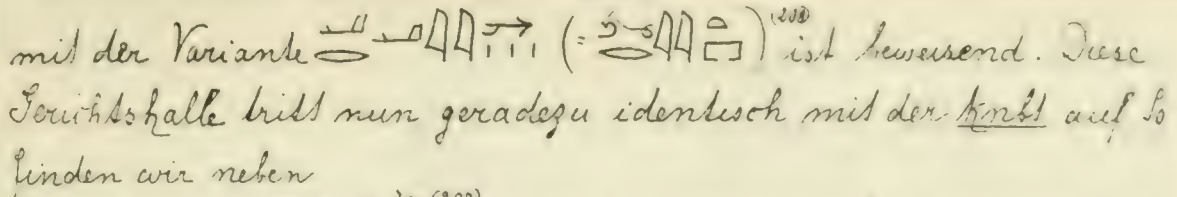 mit der Variante (= )(202) ist beweisend. Diese
Gerichtshalle tritt nun geradezu identisch mit der knbt auf So
finden wir neben